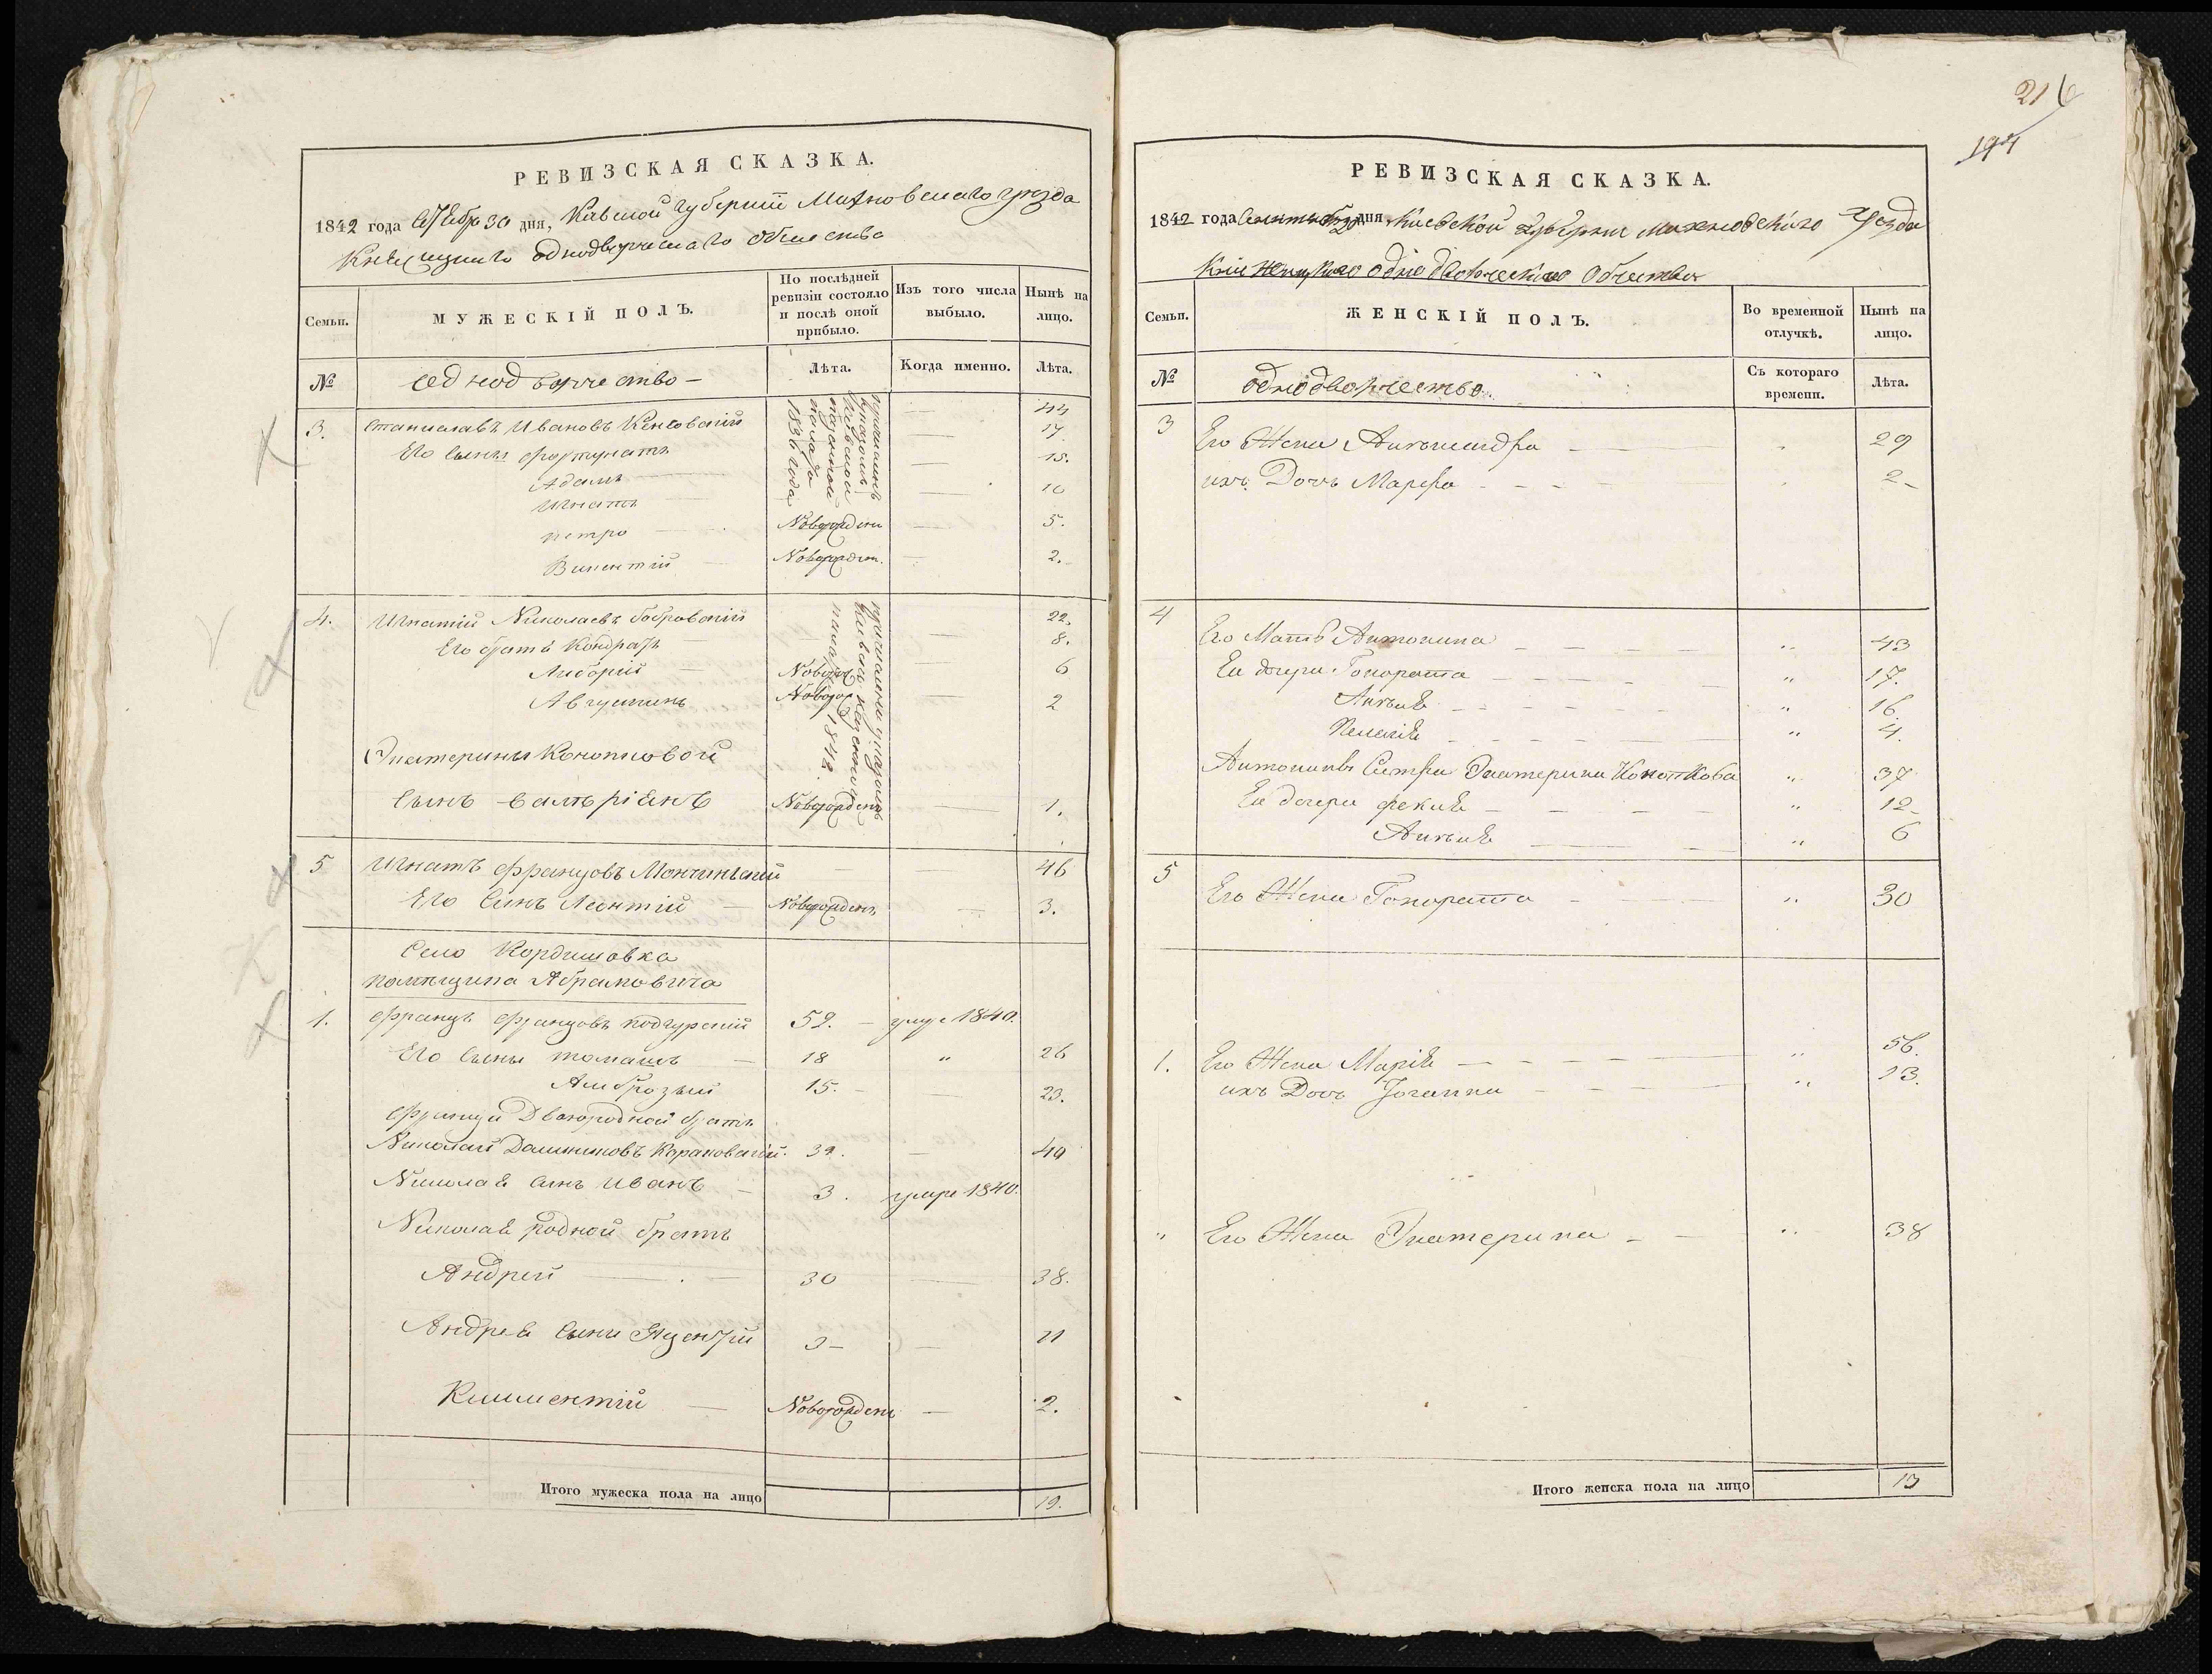 РЕВИЗСКАЯ СКАЗКА.
1842 года Сентебр 30 дня, Киевской губернии Махновского уезда
однодворческаго общества
Семьи.
МУЖЕСКІЙ ПОЛЪ.
По послѣдней ревизіи состояло и послѣ оной прибыло.
Изъ того числа выбыло.
Нынѣ на лицо.
№
однодворчество
Лѣта.
Когда именно.
Лѣта.
причисленъ указомъ Киевской казенной палаты 1836 года
3. Станиславъ Ивановъ 44
Его сыны Фортунатъ 17
Адамъ 15.
Игнатъ 10
петро Новорожден 5.
Викентій Новорожден. 2.
причислены указомъ Киевск казенной палаты 1842.
4. Игнатій Николаевъ бобровскій 22.
Его братъ Кондратъ 8.
Либорій Новорож 6
Августинъ Новорож 2
Екатерины Конопковой
Сынъ валерiанъ Новорожденъ 1.
5 Игнатъ Францовъ Мончинскій 46
Его Синъ Леонтій Новорожденъ 3.
Село Кордишовка
помѣщика Абрамовича
1. Францъ Францовъ подгурскій 52. умре 1840.
Его Сыны томашъ 18 " 26
Амброзый 15. 23.
Франца Двоюродной братъ
Николай Доминиковъ 32. 40
Николая синъ Иванъ 3. умре 1840.
Николая родной братъ
Андрей 30 38.
Андрея Сыни Яцентий 3 11
Климентій Новорожден 2.
Итого мужеска пола на лицо 19.
216
194
РЕВИЗСКАЯ СКАЗКА.
1842 года Сентебр 30 дня, Киевской губернии Махновского Уезда
однодворческого Общества
Семьи.
ЖЕНСКІЙ ПОЛЪ.
Во временной отлучкѣ.
Нынѣ на лицо.
№
однодворчество.
Съ котораго времени.
Лѣта.
3
Его Жена Александра 29
ихъ Дочь Марфа 2
4
Его Мать Антонина " 43
Ея дочери Гонората " 17.
Анеля " 16.
Пелагія " 4.
Антонины Сестра Екатерина Конопкова " 37
Ея дочери фекля " 12
Анеля " 6
5 Его Жена Гонората " 30
1. Его Жена Марія " 56.
ихъ Дочь Іоганна " 13.
" Его Жена Екатерина " 38
Итого женска пола на лицо 13